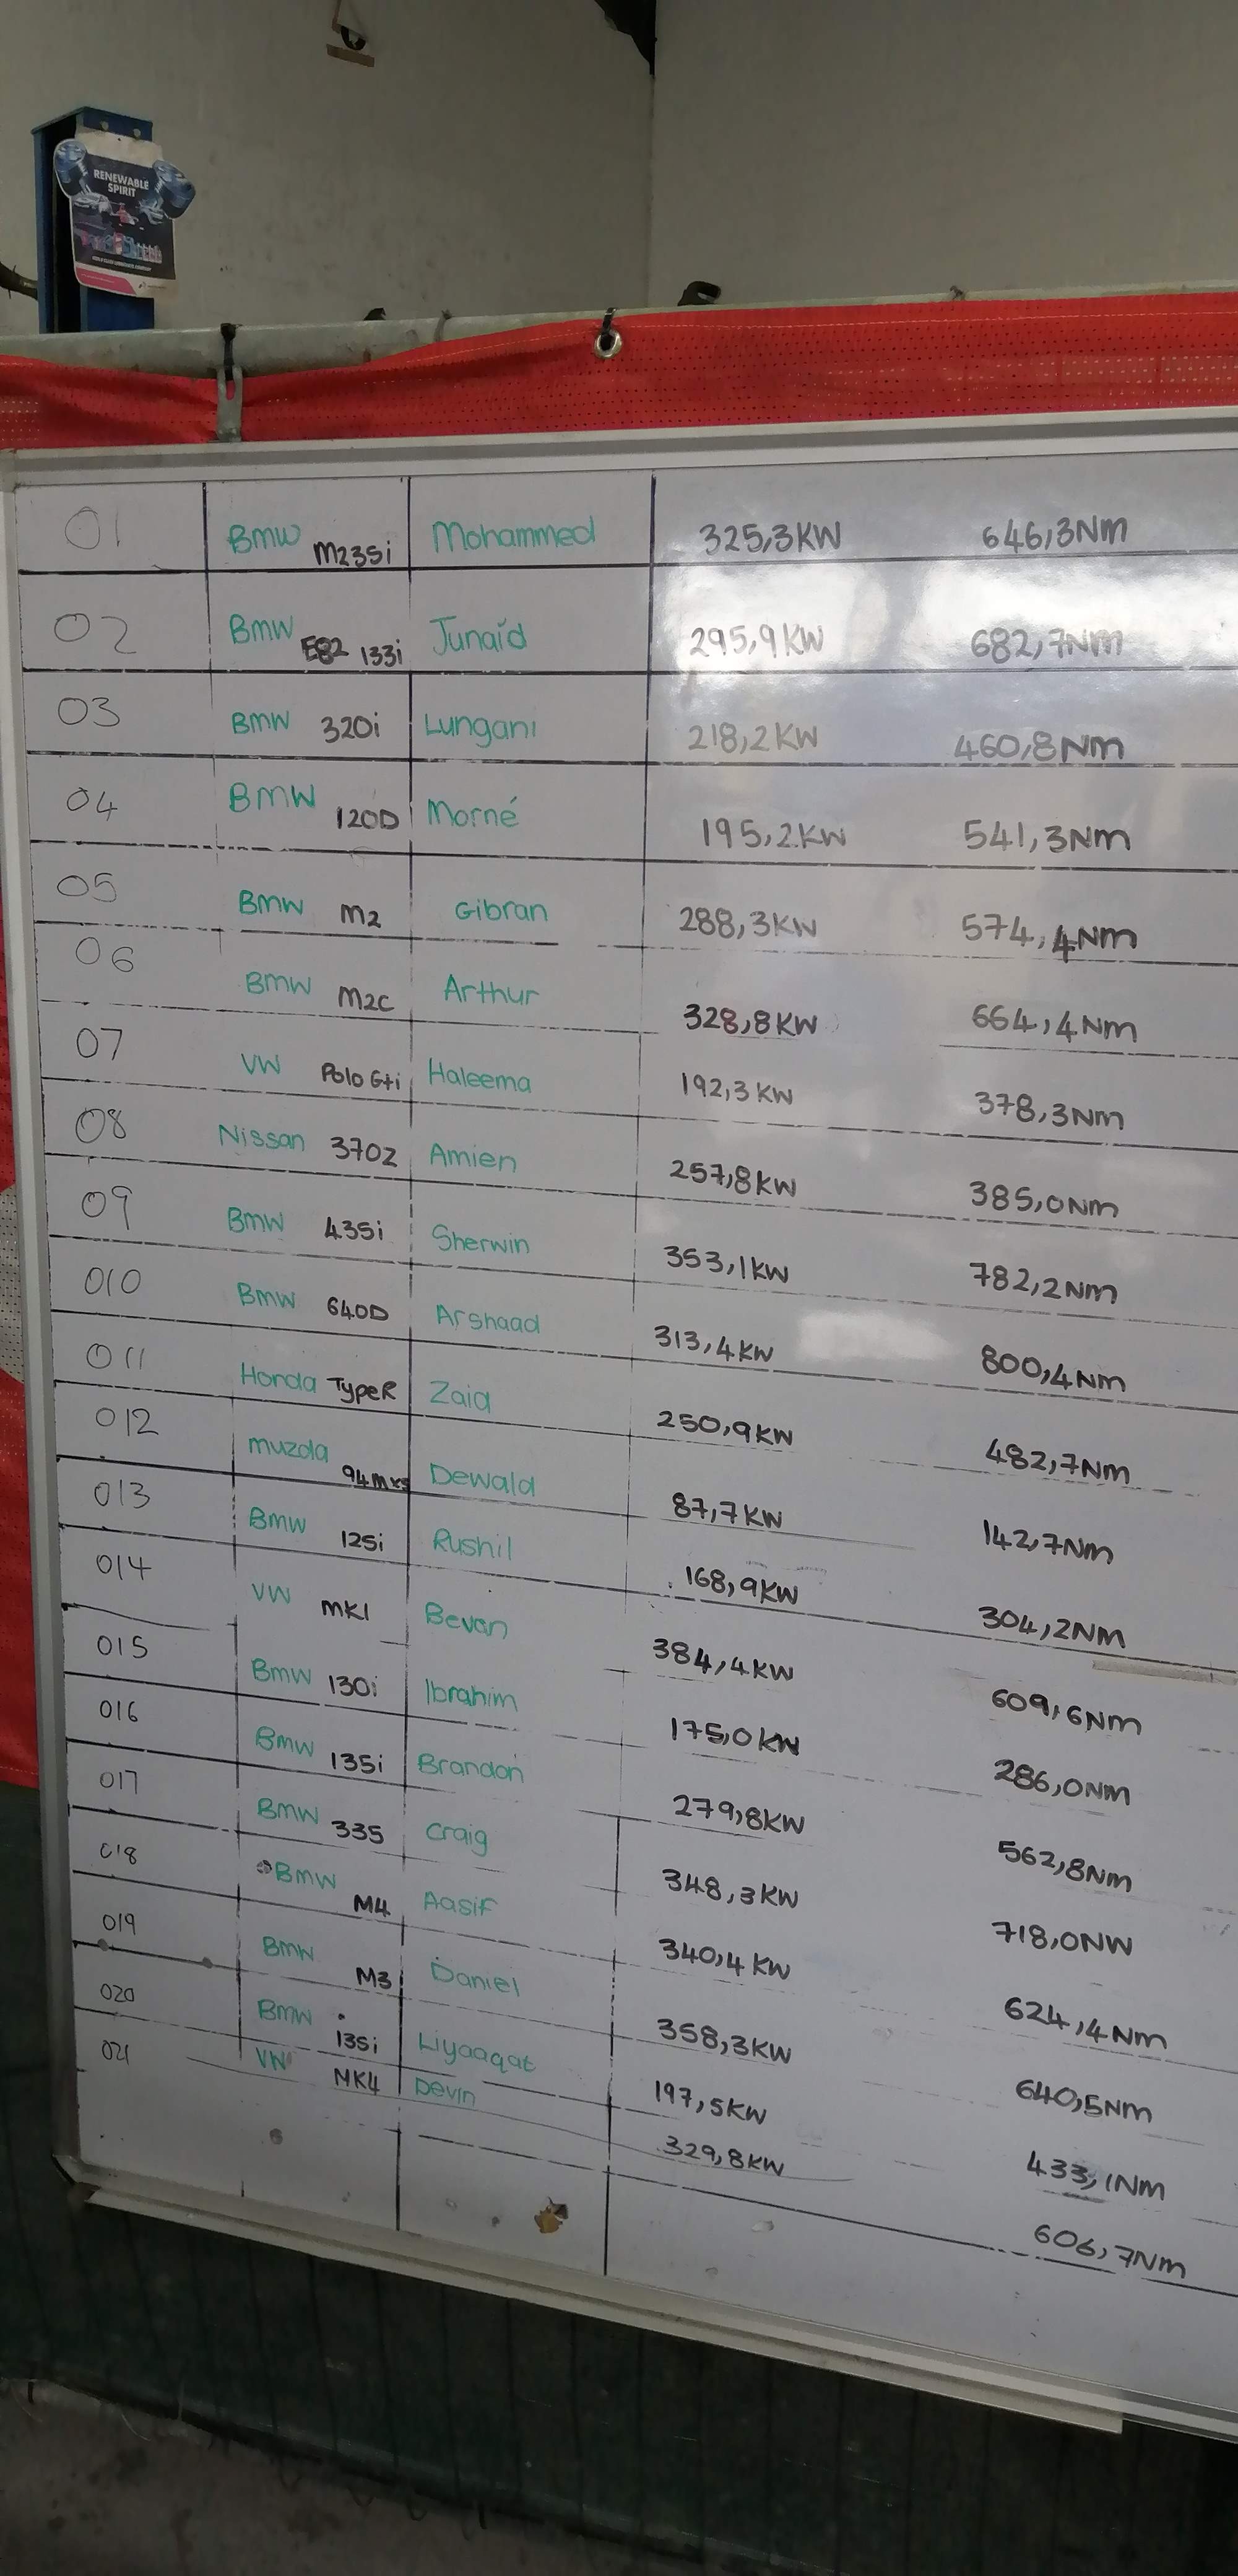 RENEWABLE
SPIRIT
01 BMW M235i Mohammed 325,3KW 646,3Nm
02 BMW E82 133i Junaid 295,9KW 682,7Nm
03 BMW 320i Lungani 218,2KW 460,8Nm
04 BMW 120D Morné 195,2KW 541,3Nm
05 BMW M2 Gibran 288,3KW 574,4Nm
06 BMW M2C Arthur 328,8KW 664,4Nm
07 VW Polo Gti Haleema 192,3KW 378,3Nm
08 Nissan 370Z Amien 257,8KW 385,0Nm
09 BMW 435i Sherwin 353,1KW 782,2Nm
010 BMW 640D Arshaad 313,4KW 800,4Nm
011 Honda TypeR Zaid 250,9KW 482,7Nm
012 muzda Dewald 87,7KW 142,7Nm
013 BMW 125i Rushil 168,9KW 304,2Nm
014 VW MK1 Bevan 384,4KW 609,6Nm
015 BMW 130i Ibrahim 175,0KW 286,0Nm
016 BMW 135i Brandon 279,8KW 562,8Nm
017 BMW 335 Craig 348,3KW 718,0NW
018 BMW M4 Aasif 340,4KW 624,4Nm
019 BMW M3 Daniel 358,3KW 640,5Nm
020 BMW 135i Liyaaqat 197,5KW 433,1Nm
021 VW MK4 Devin 329,8KW 606,7Nm